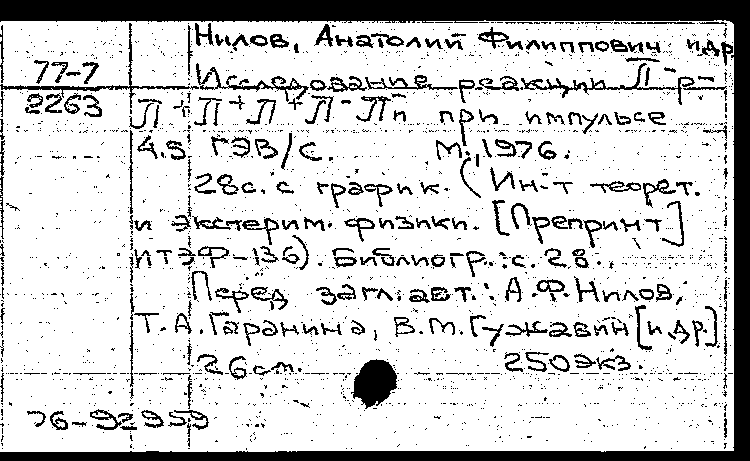 Нилов, Анатолий Филиппович и др
77-7 Исследование реакции П⁻р-
2263 П⁺П⁺П⁺П⁻П⁻n при импульсе
4.5 ГЭВ/С. М., 1976.
28с. с график. (Ин-т теорет.
и эксперим. физики. [Препринт]
ИТЭФ-136). Библиогр.: с. 28.
Перед загл. авт.: А.Ф.Нилов,
Т.А.Гаранина, В.М.Гужавин [и др.]
26 см. 250 экз.
76-92959